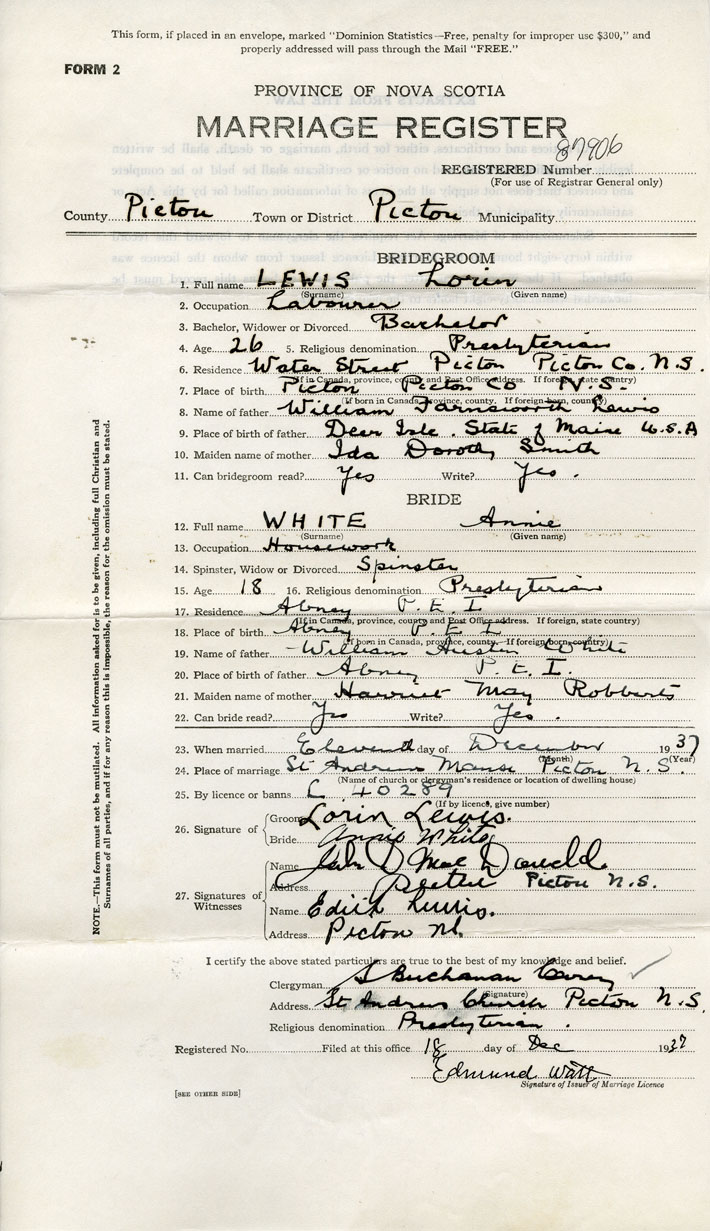 This form, if placed in an envelope, marked "Dominion Statistics—Free, penalty for improper use $300," and
properly addressed will pass through the Mail "FREE."
FORM 2
PROVINCE OF NOVA SCOTIA
MARRIAGE REGISTER
87906
REGISTERED Number
(For use of Registrar General only)
County Pictou Town or District Pictou Municipality
BRIDEGROOM
1. Full name LEWIS Lorin
(Surname) (Given name)
2. Occupation Labourer
3. Bachelor, Widower or Divorced Bachelor
4. Age 26 5. Religious denomination Presbyterian
6. Residence Water Street Pictou Pictou Co. N.S.
(If in Canada, province, county and Post Office address. If foreign, state country)
7. Place of birth Pictou Pictou Co N.S.
(If born in Canada, province, county. If foreign born, country)
8. Name of father William Farnsworth Lewis
9. Place of birth of father Deer Isle. State of Maine U.S.A
10. Maiden name of mother Ida Dorothy Smith
11. Can bridegroom read? Yes Write? Yes.
BRIDE
12. Full name WHITE Annie
(Surname) (Given name)
13. Occupation Housework
14. Spinster, Widow or Divorced Spinster
15. Age 18 16. Religious denomination Presbyterian
17. Residence Abney P.E.I
(If in Canada, province, county and Post Office address. If foreign, state country)
18. Place of birth Abney P.E.I
(If born in Canada, province, county. If foreign born, country)
19. Name of father William Austin White
20. Place of birth of father Abney P.E.I.
21. Maiden name of mother Harriet May Robberts
22. Can bride read? Yes Write? Yes.
23. When married Eleventh day of December 1937
(Month) (Year)
24. Place of marriage St Andrews Manse Pictou N.S.
(Name of church or clergyman's residence or location of dwelling house)
25. By licence or banns L 40289
(If by licence, give number)
26. Signature of Groom Lorin Lewis.
Bride Annie White
27. Signatures of Witnesses
Name John D MacDonald
Address Pictou N.S.
Name Edith Lewis.
Address Pictou NS.
I certify the above stated particulars are true to the best of my knowledge and belief.
Clergyman S Buchanan Carey
(Signature)
Address St Andrews Church Pictou N.S.
Religious denomination Presbyterian.
Registered No. Filed at this office 18 day of Dec 1937
Edmund Watt
Signature of Issuer of Marriage Licence
[SEE OTHER SIDE]
NOTE.—This form must not be mutilated. All information asked for is to be given, including full Christian and
Surnames of all parties, and if for any reason this is impossible, the reason for the omission must be stated.